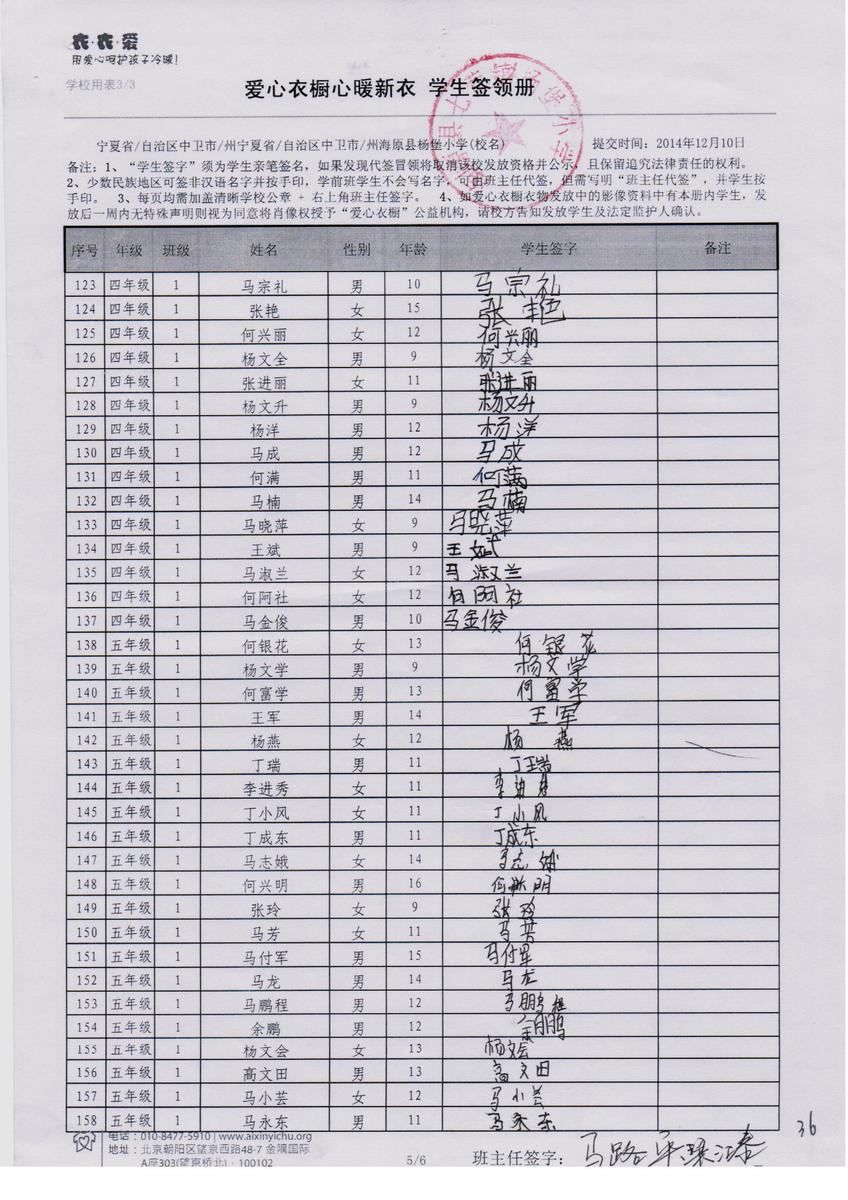 衣·衣·爱
用爱心呵护孩子冷暖!
学校用表3/3
爱心衣橱心暖新衣 学生签领册
宁夏省/自治区中卫市/州宁夏省/自治区中卫市/州海原县杨堡小学(校名) 提交时间: 2014年12月10日
备注: 1、“学生签字”须为学生亲笔签名, 如果发现代签冒领将取消该校发放资格并公示, 且保留追究法律责任的权利。
2、少数民族地区可签非汉语名字并按手印, 学前班学生不会写名字, 可由班主任代签, 但需写明“班主任代签”, 并学生按
手印。 3、每页均需加盖清晰学校公章 + 右上角班主任签字。 4、如爱心衣橱衣物发放中的影像资料中有本册内学生, 发
放后一周内无特殊声明则视为同意将肖像权授予“爱心衣橱”公益机构, 请校方告知发放学生及法定监护人确认。
序号 年级 班级 姓名 性别 年龄 学生签字 备注
123 四年级 1 马宗礼 男 10 马宗礼
124 四年级 1 张艳 女 15 张艳
125 四年级 1 何兴丽 女 12 何兴丽
126 四年级 1 杨文全 男 9 杨文全
127 四年级 1 张进丽 女 11 张进丽
128 四年级 1 杨文升 男 9 杨文升
129 四年级 1 杨洋 男 12 杨洋
130 四年级 1 马成 男 12 马成
131 四年级 1 何满 男 11 何满
132 四年级 1 马楠 男 14 马楠
133 四年级 1 马晓萍 女 9 马晓萍
134 四年级 1 王斌 男 9 王斌
135 四年级 1 马淑兰 女 12 马淑兰
136 四年级 1 何阿社 女 12 何阿社
137 四年级 1 马金俊 男 10 马金俊
138 五年级 1 何银花 女 13 何银花
139 五年级 1 杨文学 男 9 杨文学
140 五年级 1 何富学 男 13 何富学
141 五年级 1 王军 男 14 王军
142 五年级 1 杨燕 女 12 杨燕
143 五年级 1 丁瑞 男 11 丁瑞
144 五年级 1 李进秀 女 11 李进秀
145 五年级 1 丁小风 女 11 丁小风
146 五年级 1 丁成东 男 11 丁成东
147 五年级 1 马志娥 女 14 马志娥
148 五年级 1 何兴明 男 16 何兴明
149 五年级 1 张玲 女 9 张玲
150 五年级 1 马芳 女 11 马芳
151 五年级 1 马付军 男 15 马付军
152 五年级 1 马龙 男 14 马龙
153 五年级 1 马鹏程 男 12 马鹏程
154 五年级 1 余鹏 男 12 余鹏
155 五年级 1 杨文会 女 13 杨文会
156 五年级 1 高文田 男 13 高文田
157 五年级 1 马小芸 女 12 马小芸
158 五年级 1 马永东 男 11 马永东
36
电话: 010-8477-5910 | www.aixinyichu.org
地址: 北京朝阳区望京西路48-7 金隅国际
A座303(望京桥北) · 100102
5/6
班主任签字: 马路平